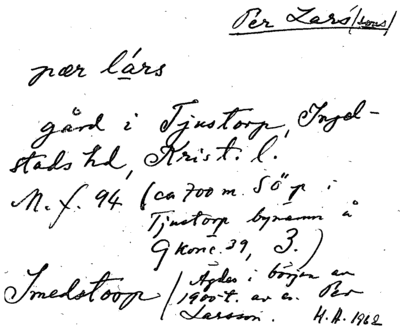 Per Lars/sons/
pær lárs
gård i Tjustorp, Ingel-
stads hd, Krist. l.
M. f. 94 (ca 700 m SÖ p i
Tjustorp bynamn å
9 konc. 39, 3.)
Smedstoop / Ägdes i början av
1900-t. av en Per
Larsson. H.A. 1962